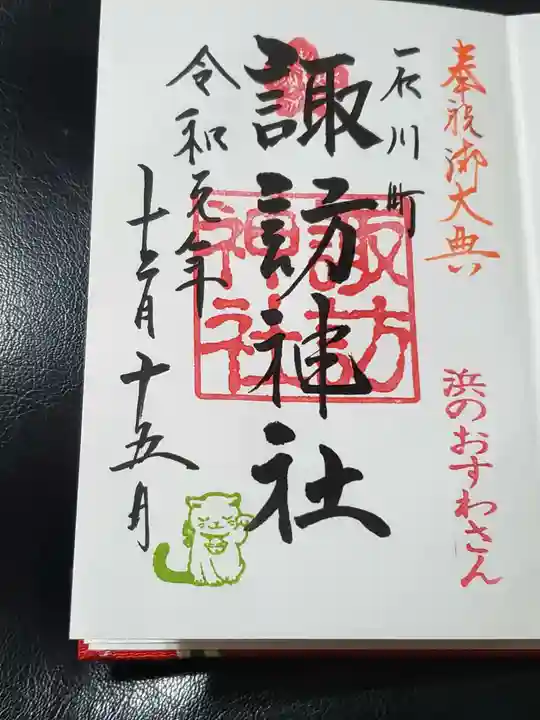 奉祝御大典
浜のおすわさん
石川町
諏訪神社
諏訪
神社
令和元年
十二月十五日